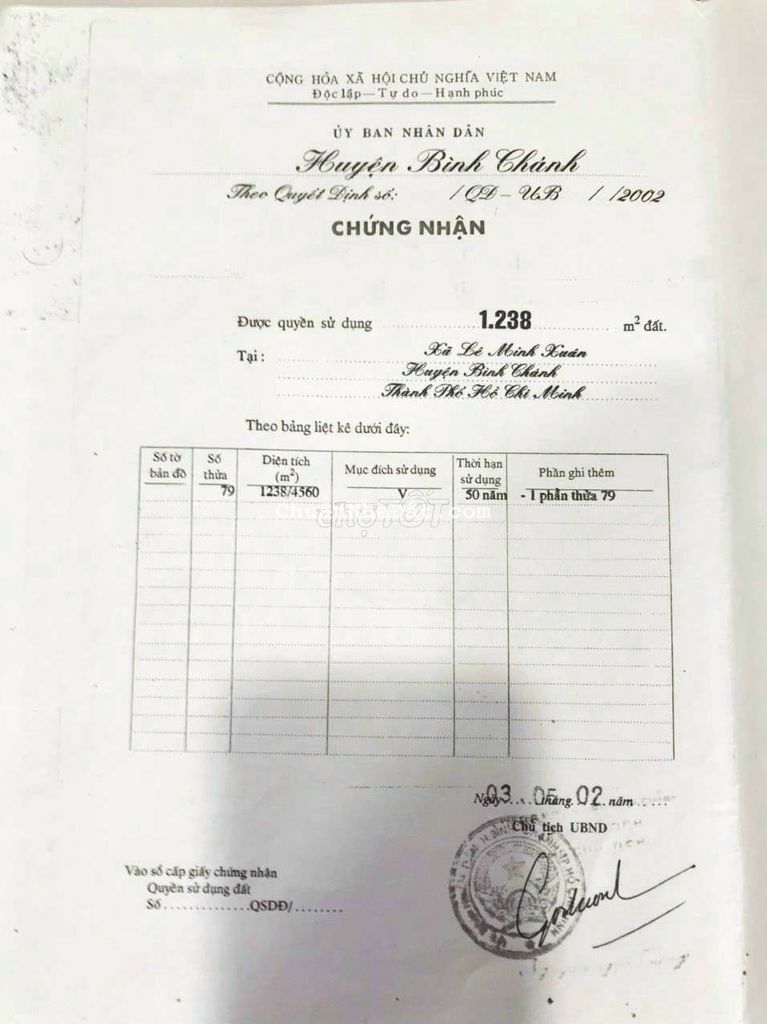 CỘNG HÒA XÃ HỘI CHỦ NGHĨA VIỆT NAM
Độc lập — Tự do — Hạnh phúc
ỦY BAN NHÂN DÂN
Huyện Bình Chánh
Theo Quyết Định số: /QĐ - UB / /2002
CHỨNG NHẬN
Được quyền sử dụng 1.238 m² đất.
Tại : Xã Lê Minh Xuân
Huyện Bình Chánh
Thành Phố Hồ Chí Minh
Theo bảng liệt kê dưới đây:
Số tờ bản đồ Số thửa Diện tích (m²) Mục đích sử dụng Thời hạn sử dụng Phần ghi thêm
79 1238/4560 V 50 năm - 1 phần thửa 79
chợTỐT
Ngày 03 tháng 05 02 năm
Chủ tịch UBND
Vào sổ cấp giấy chứng nhận
Quyền sử dụng đất
Số..............QSDĐ/........